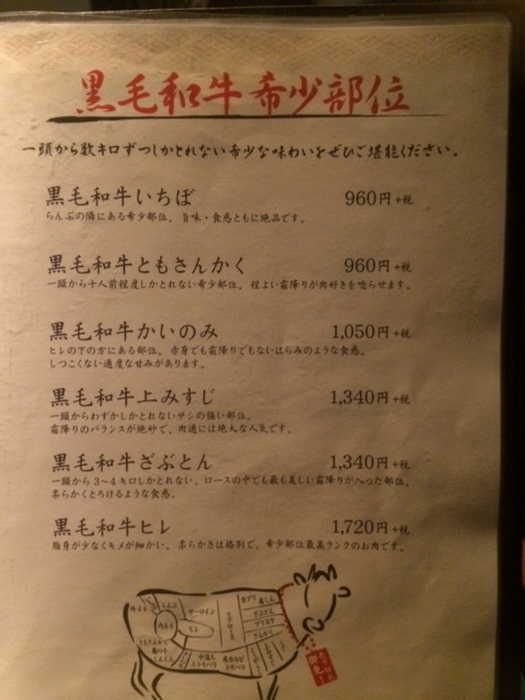 黒毛和牛希少部位
一頭から数キロずつしかとれない希少な味わいをぜひご堪能ください。
黒毛和牛いちぼ 960円+税
らんぷの隣にある希少部位。旨味・食感ともに絶品です。
黒毛和牛ともさんかく 960円+税
一頭から十人前程度しかとれない希少部位。程よい霜降りが肉好きを唸らせます。
黒毛和牛かいのみ 1,050円+税
ヒレの下の方にある部位。赤身でも霜降りでもないはらみのような食感。
しつこくない適度な甘みがあります。
黒毛和牛上みすじ 1,340円+税
一頭からわずかしかとれないサシの強い部位。
霜降りのバランスが絶妙で、肉通には絶大な人気です。
黒毛和牛ざぶとん 1,340円+税
一頭から3〜4キロしかとれない、ロースの中でも最も美しい霜降りが入った部位。
柔らかくとろけるような食感。
黒毛和牛ヒレ 1,720円+税
脂身が少なくキメが細かい。柔らかさは格別で、希少部位最高ランクのお肉です。
サーロイン
ヒレ
リブロース